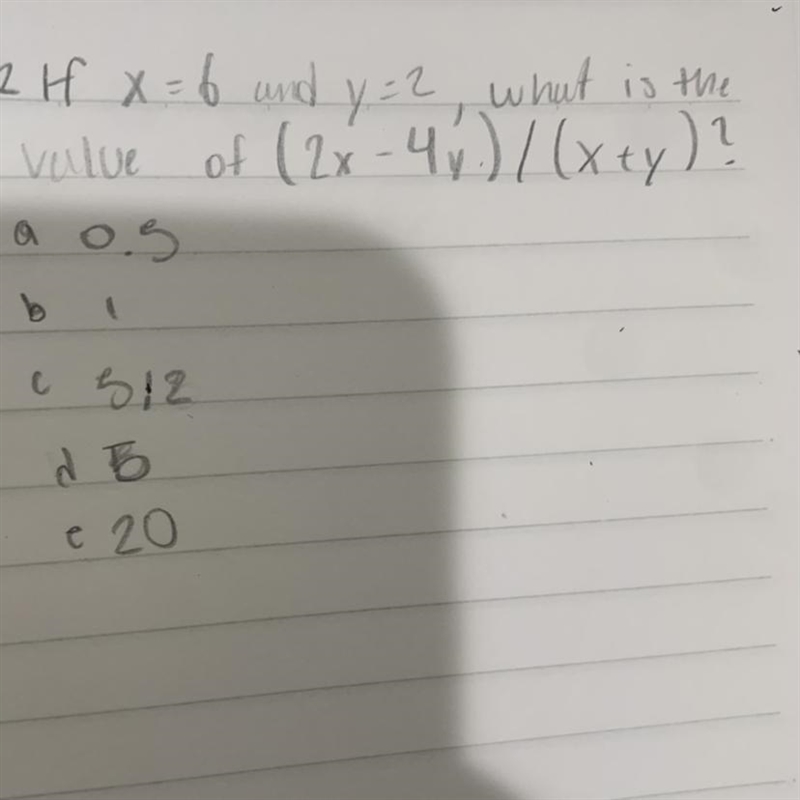 2 If x = 6 and y = 2, what is the
value of (2x - 4y) / (x + y)?
a 0.5
b 1
c 5/2
d 5
e 20